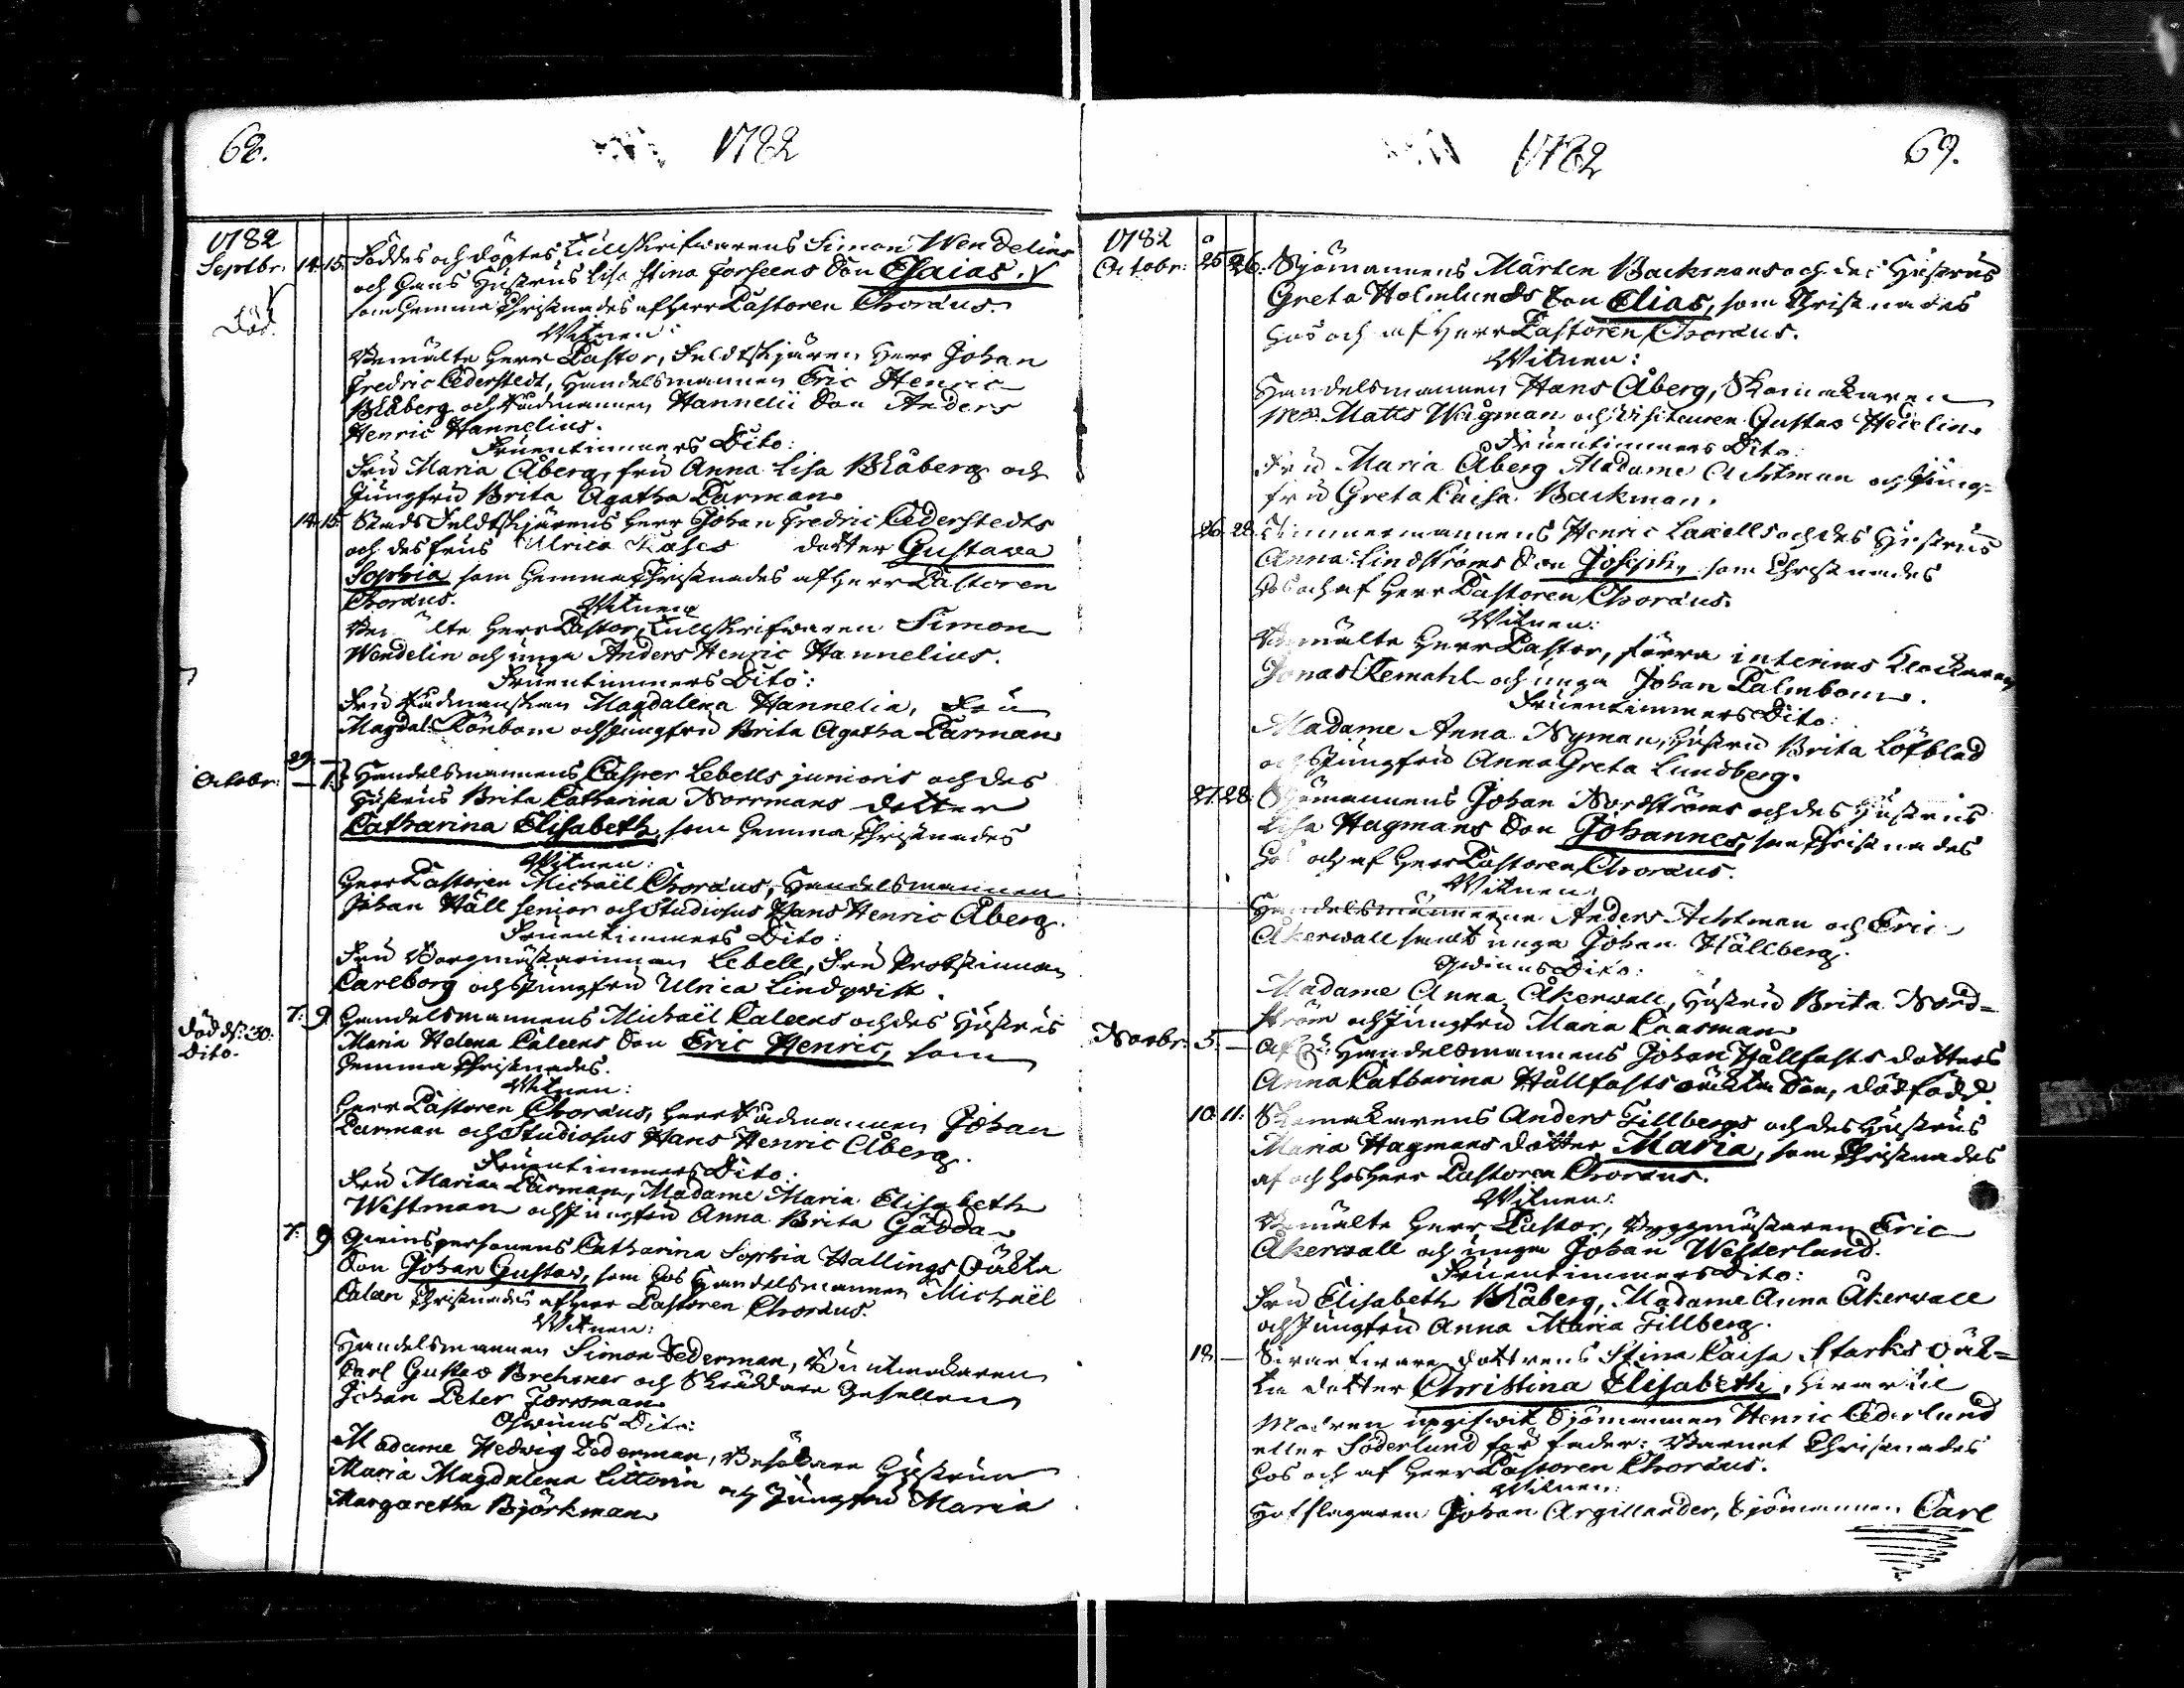 68.
1782
1782
Septbr. 14. 15. Föddes och döptes Tullskrifwarens Simon Wendelins
och hans Hustrus Lisa Stina Forseens Son Esaias.
Död. som hemma Christnades af Herr Pastoren Choræus.
Witnen
Bemälte Herr Pastor, Feldtskjären Herr Johan
Fredric Cederstedt, Handelsmannen Eric Henric
Blåberg och Rådmannen Hannelii Son Anders
Henric Hannelius.
Fruentimmers Dito:
Fru Maria Åberg, fru Anna Lisa Blåberg och
Jungfru Brita Agatha Parman
14. 15. Stads Feldtskjärens Herr Johan Fredric Cederstedts
och des frus Ulrica dotter Gustava
Sophia som hemma Christnades af Herr Pastoren
Choræus.
Witnen
Herr Pastor, Tullskrifwaren Simon
Wendelin och unga Anders Henric Hannelius.
Fruentimmers Dito:
Fru Rådmanskan Magdalena Hannelia, Fru
Magdal: Rönbom och Jungfru Brita Agatha Parman
29. —
Octobr: — 1. Handelsmannens Casper Lebells junioris och des
Hustrus Brita Catharina Norrmans dotter
Catharina Elisabeth, som hemma Christnades
Witnen:
Herr Pastoren Michaël Choræus, Handelsmannen
Johan Häll senior och Studiosus Hans Henric Åberg.
Fruentimmers Dito:
Fru Borgmästarinnan Lebell, Fru Probstinnan
Carlborg och Jungfru Ulrica Lindqwist.
7: 9 Handelsmannens Michaël Caleens och des Hustrus
Död d: 30:
Dito.
Maria Helena Caleens Son Eric Henric, som
hemma Christnades.
Witnen:
Herr Pastoren Choræus, Herr Rådmannen Johan
Parman och Studiosus Hans Henric Åberg.
Fruentimmers Dito:
Fru Maria Parman, Madame Maria Elisabeth
Westman och Jungfru Anna Brita Gädda
7: 9 Qwinspersonens Catharina Sophia Hallings oäkta
Son Johan Gustav, som hos Handelsmannen Michaël
Calen Christnades af Herr Pastoren Choræus.
Witnen:
Handelsmannen Simon Federman, Buntmakaren
Carl Gustav Brehmer och Skräddare Gesällen
Johan Peter Forssman
Qwinns Dito:
Madame Hedvig Federman, Hustrun
Maria Magdalena Littorin och Jungfru Maria
Margaretha Björkman
69.
1782
1782
Octobr: 25 26: Sjömannens Mårten Backmans och des Hustrus
Greta Holmlunds Son Elias, som Christnades
hos och af Herr Pastoren Choræus.
Witnen:
Handelsmannen Hans Åberg, Skomakaren
Matts Wågman och Visiteuren Gustav Hedelin
Fruentimmers Dito:
Fru Maria Åberg Madame Achtman och Jung-
fru Greta Caisa Backman.
26. 28. Timmermannens Henric Laxells och des Hustrus
Anna Lindströms Son Joseph, som Christnades
hos och af Herr Pastoren Choræus.
Witnen:
Bemälte Herr Pastor, förra interims Klockaren
Jonas Remahl och unga Johan Palmbom.
Fruentimmers Dito:
Madame Anna Nyman, Hustru Brita Löfblad
och Jungfru Anna Greta Lundberg.
27. 28. Sjömannens Johan Nordströms och des Hustrus
Lisa Hagmans Son Johannes, som Christnades
hos och af Herr Pastoren Choræus.
Witnen:
Handelsmännerne Anders Achtman och Eric
Åkerwall samt unga Johan Hällberg.
Qwinns Dito:
Madame Anna Åkerwall, Hustru Brita Nord=
ström och Jungfru Maria Casman
Novbr: 5. — Af Handelsmannens Johan Hållfasts dotters
Anna Catharina Hållfasts oäkta Son, dödfödd.
10. 11: Skomakarens Anders Tillbergs och des Hustrus
Maria Hagmans dotter Maria, som Christnades
af och hos Herr Pastoren Choræus.
Witnen:
Bemälte Herr Pastor, Byggmästaren Eric
Åkerwall och unga Johan Westerlund.
Fruentimmers Dito:
Fru Elisabeth Blåberg, Madame Anna Åkerwall
och Jungfru Anna Maria Tillberg.
18. — Swarfware dottrens Stina Caisa Starks oäk=
ta dotter Christina Elisabeth, hwartil
Modren upgifwit Sjömannen Henric Cederlund
eller Söderlund för fader: Barnet Christnades
hos och af Herr Pastoren Choræus.
Witnen:
Hofslagaren Johan Argillander, Sjömannen Carl